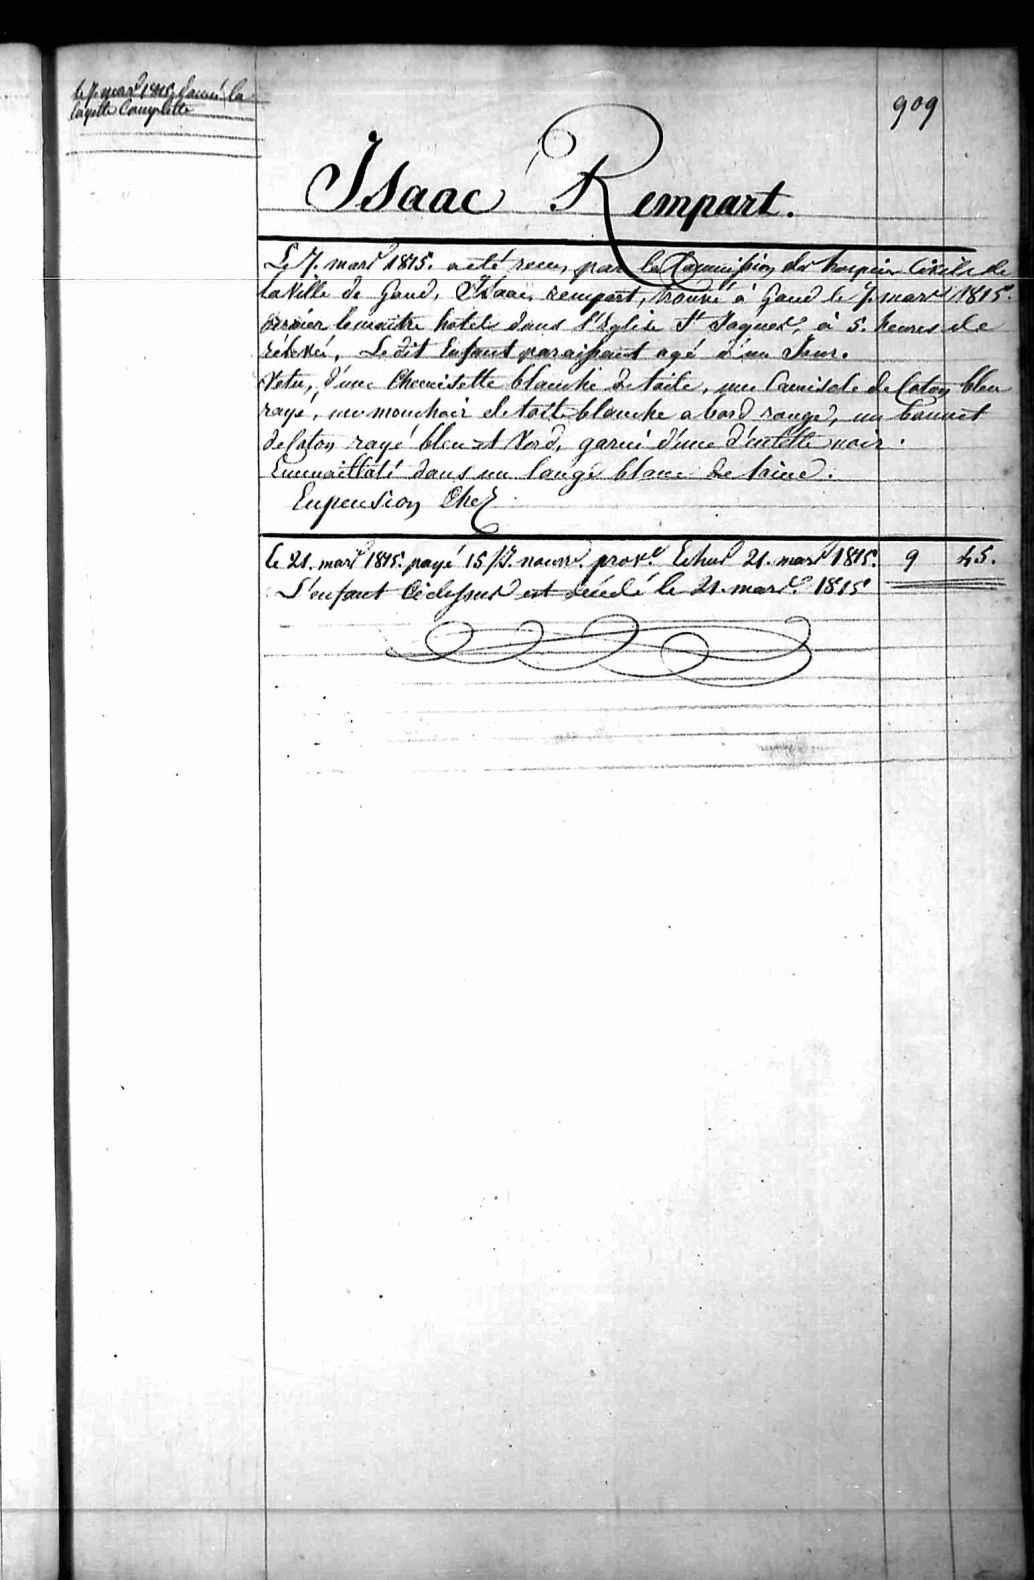 le 7. mars 1815. donné la
layette Complette
909
Isaac Rempart.
Le 7. mars 1815. a eté recu, par la Commission des hospices Civils de
la Ville de Gand, Isaac rempart, trouvé à Gand le 7. mars 1815.
derrier le maitre hotel dans l'Eglise St Jaques, à 5. heures de
rélevé, Le dit Enfant paraissant agé d'un Jour.
Vetu, d'une Chemisette blanche de toile, une Camisole de Coton bleu
rayé, un mouchoir de toile blanche a bord rouge, un bonnet
de Coton rayé bleu et Verd, garni d'une d'entelle noir.
Emmailloté dans un lange blanc de laine.
En pension Chez
Le 21. mars 1815. payé 15 Js. nourr. prov.e Echus 21. mars 1815. 9 45.
L'enfant Cidessus est décédé le 21. mars 1815